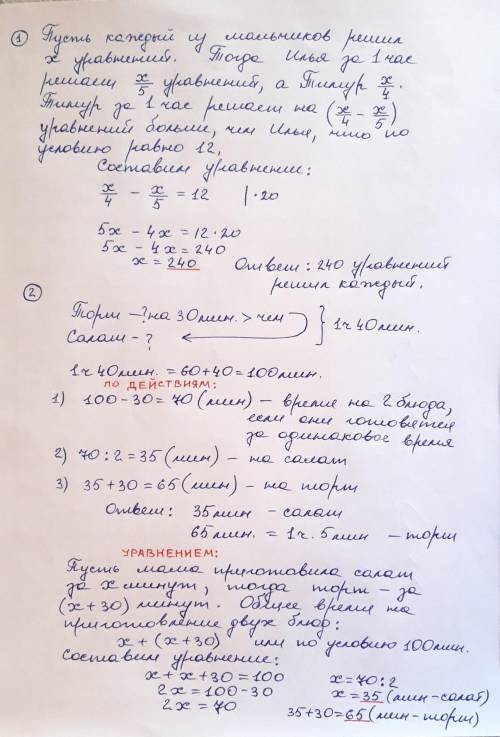 ① Пусть каждый из мальчиков решил
x уравнений. Тогда Илья за 1 час
решает x/5 уравнений, а Тимур x/4.
Тимур за 1 час решает на (x/4 - x/5)
уравнений больше, чем Илья, что по
условию равно 12.
Составим уравнение:
x/4 - x/5 = 12 |·20
5x - 4x = 12·20
5x - 4x = 240
x = 240 Ответ: 240 уравнений
решил каждый.
②
Торт -? на 30 мин. > чем
Салат - ? } 1ч 40 мин.
1ч 40 мин. = 60+40 = 100 мин.
ПО ДЕЙСТВИЯМ:
1) 100-30 = 70 (мин) - время на 2 блюда,
если они готовятся
за одинаковое время
2) 70:2 = 35 (мин) - на салат
3) 35+30 = 65 (мин) - на торт
Ответ: 35 мин - салат
65 мин. = 1ч. 5 мин - торт
УРАВНЕНИЕМ:
Пусть мама приготовила салат
за x минут, тогда торт - за
(x+30) минут. Общее время на
приготовление двух блюд:
x + (x+30) или по условию 100 мин.
Составим уравнение:
x + x + 30 = 100 x = 70:2
2x = 100-30 x = 35 (мин - салат)
2x = 70 35+30 = 65 (мин - торт)